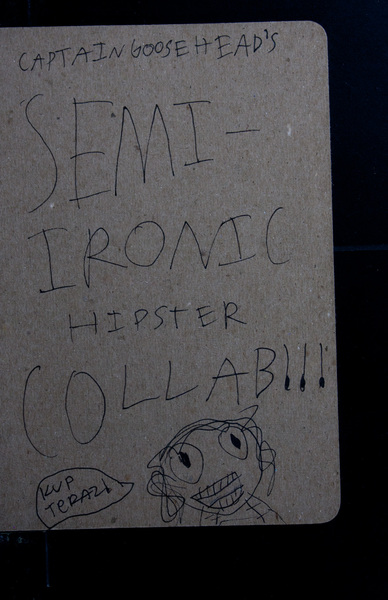 CAPTAIN GOOSEHEAD'S
SEMI-
IRONIC
HIPSTER
COLLAB!!!
KUP
TERAZ!